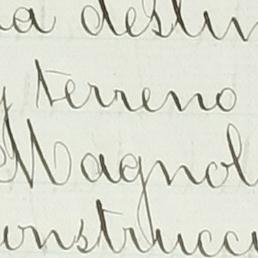 a destin
y terreno
Magnol
onstrucci